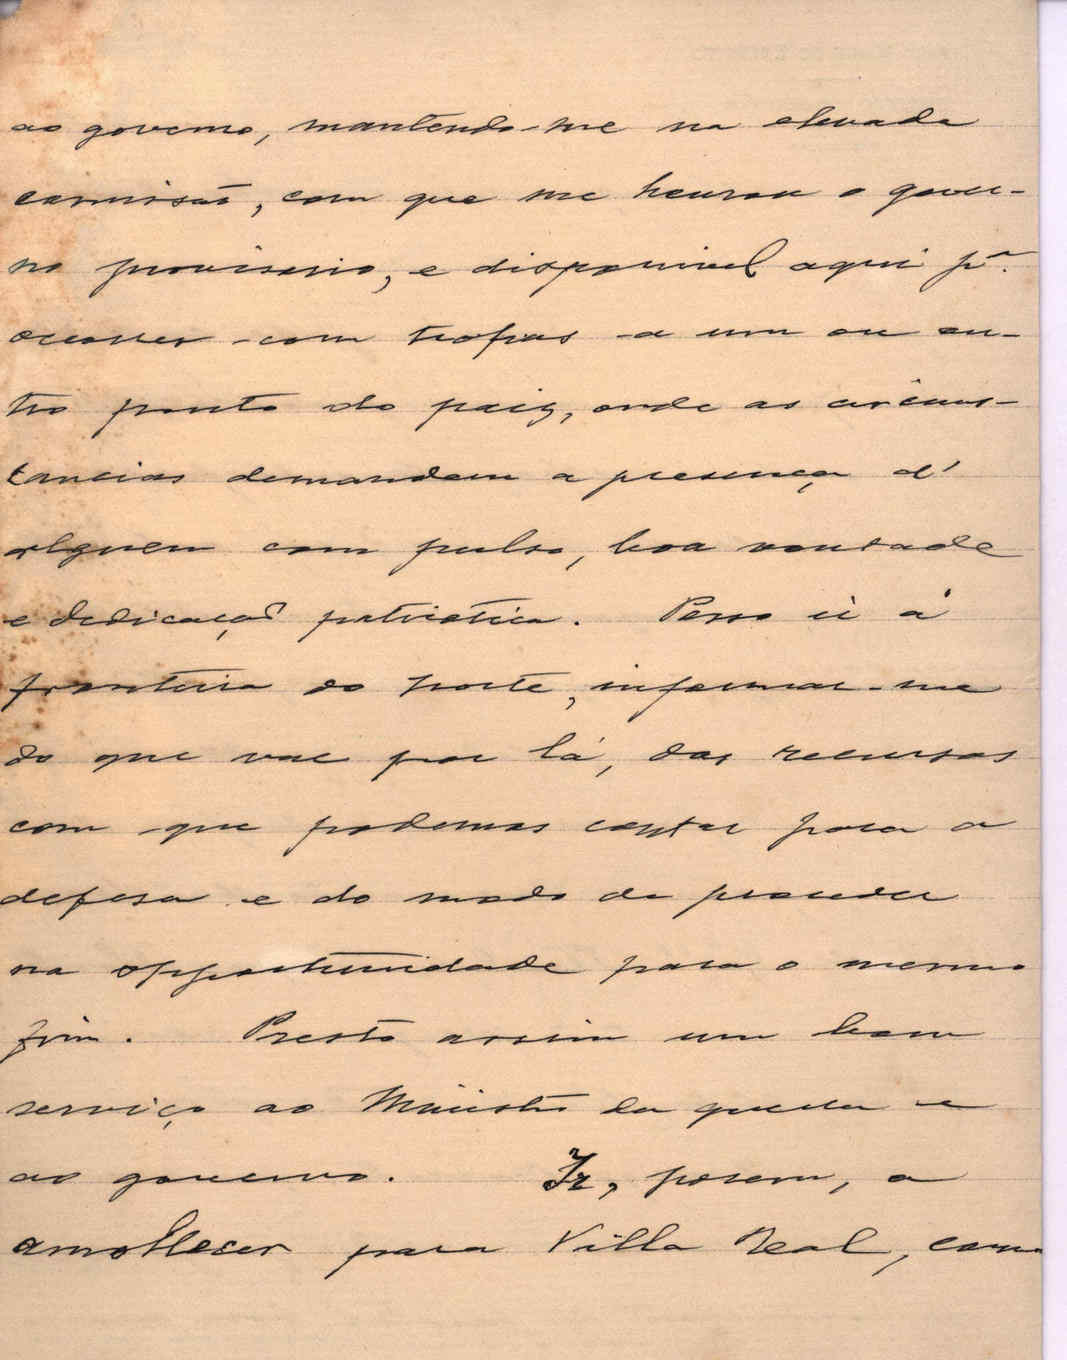 ao governo, mantendo-me na elevada
comissão, com que me honrou o gover-
no provisorio, e disponivel aqui pª.
occorrer com tropas a um ou ou-
tro ponto do paiz, onde as circums-
tancias demandem a presença d'
alguem com pulso, boa vontade
e dedicação patriotica. Posso ir á
fronteira do norte, informar-me
do que vae por lá, dos recursos
com que podemos contar para a
defesa e do modo de proceder
na opportunidade para o mesmo
fim. Presto assim um bom
serviço ao Ministro da guerra e
ao governo. Ir, porem, a
amollecer para Villa Real, como